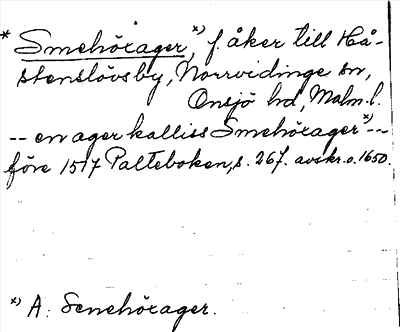 * Smehörager,*) f. åker till Hå-
stenslövs by, Norrvidinge sn,
Onsjö hd, Malm. l.
-- en ager kalliss Smehörager*)--
före 1517 Palteboken, s. 267. avskr. o. 1650.
*) A: Senehörager.